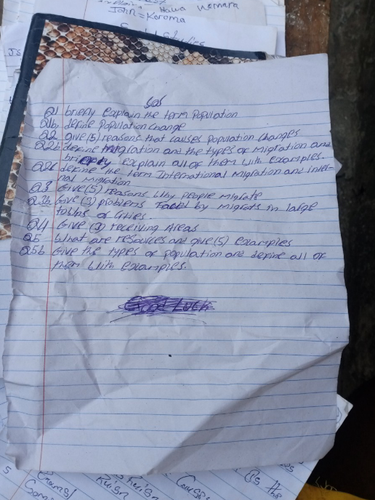 Hawa Kemara
Jain = Koroma
Q1 briefly Explain the term Population
Q1b define Population change
Q2 Give (5) reasons that causes Population changes
Q2b define Migration and the types of Migration and
briefly explain all of them with examples.
Q2c define the term International Migration and inter-
nal Migration
Q3 Give (5) reasons why people migrate
Q3b Give (2) problems faced by migrats in large
towns or cities.
Q4 Give (3) receiving Areas
Q5 What are resources and give (5) examples
Q5b Give the types of population and define all of
them with examples.
Good Luck